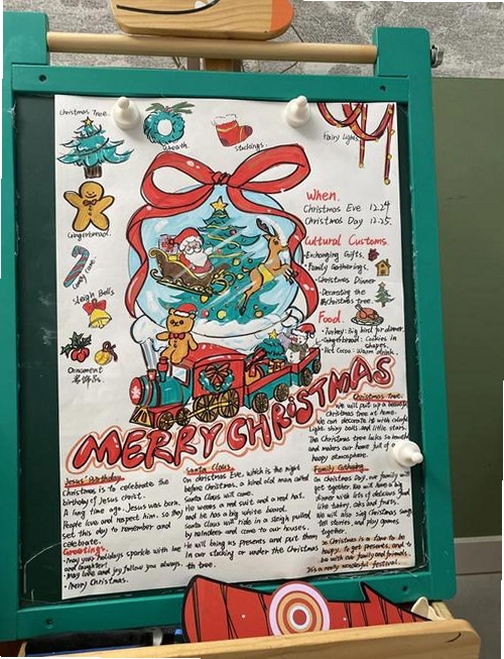 Christmas Tree.
Wreath.
Stockings.
Fairy Lights
Gingerbread.
Candy Cane.
Sleigh Bells
Ornament
When.
Christmas Eve 12.24
Christmas Day 12.25.
Cultural Customs.
· Exchanging Gifts.
· Family Gatherings.
· Christmas Dinner
· Decorating the
Christmas tree.
Food.
· Turkey: Big bird for dinner.
· Gingerbread: Cookies in
shapes.
· Hot Cocoa: Warm drink.
MERRY CHRISTMAS
Jesus' Birthday
Christmas is to celebrate the
birthday of Jesus Christ.
A long time ago, Jesus was born.
People love and respect him, so they
set this day to remember and
celebrate.
Greetings.
· May your holidays sparkle with
and laughter!
· May love and joy follow you always.
· Merry Christmas.
Santa Claus
On Christmas Eve, which is the night
before Christmas, a kind old man called
Santa Claus will come.
He wears a red suit and a red hat,
and he has a big white beard.
Santa Claus will ride in a sleigh pulled
by reindeer and come to our houses.
He will bring us presents and put them
in our stocking or under the Christmas
tree.
Christmas Tree.
we will put up a
Christmas tree at home.
We can decorate it with colorful
light, shiny balls and little stars.
The Christmas tree looks so
and makes our home full of a
happy atmosphere.
Family Gathering
On Christmas Day, our family will
get together. We will have a big
dinner with lots of delicious food
like turkey, cake and fruits.
We will also sing Christmas songs,
tell stories, and play games
together.
So Christmas is a time to be
happy, to get presents, and to
be with our family and friends.
It's a really wonderful festival.